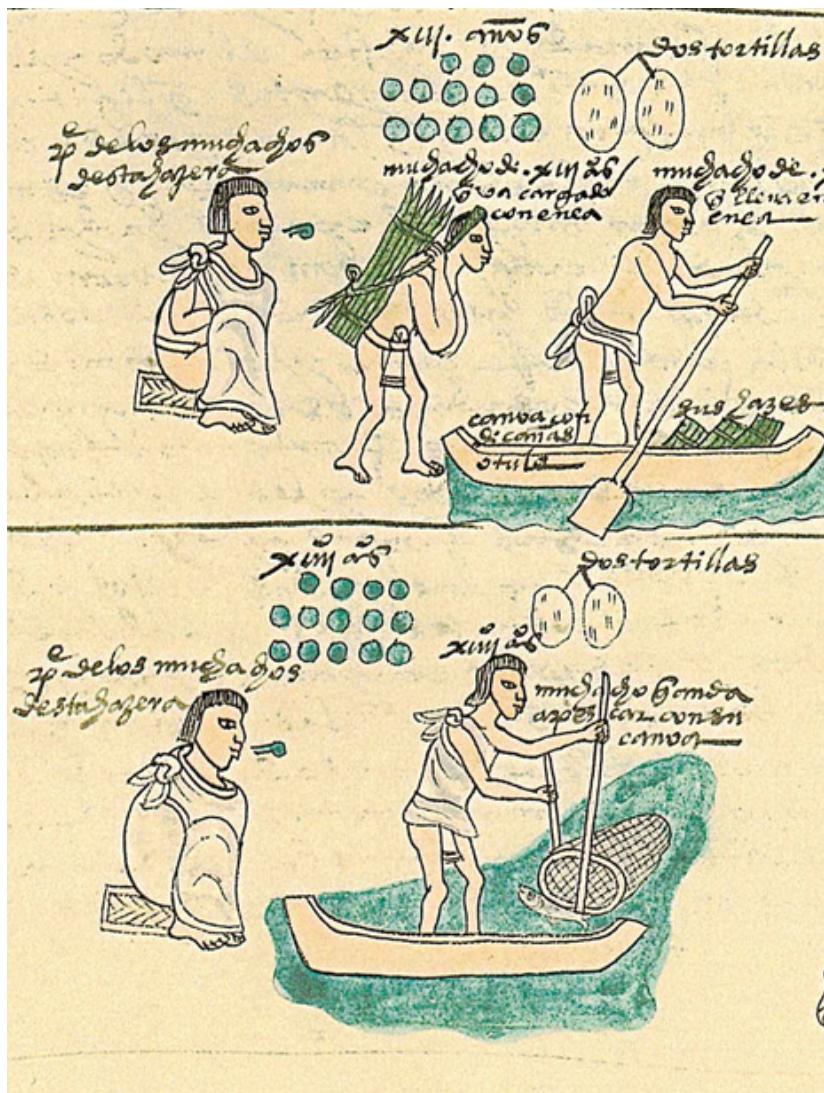 xiii. años
dos tortillas
pe. de los muchachos
desta hazera
muchacho de. xiii as
q va cargado
con enea
muchacho de.
q lleva en
enea
canoa con
de cañas
o tule
sus hazes
xiiii as
dos tortillas
pe. de los muchachos
desta hazera
xiiii as
muchacho q anda
a pescar con su
canoa